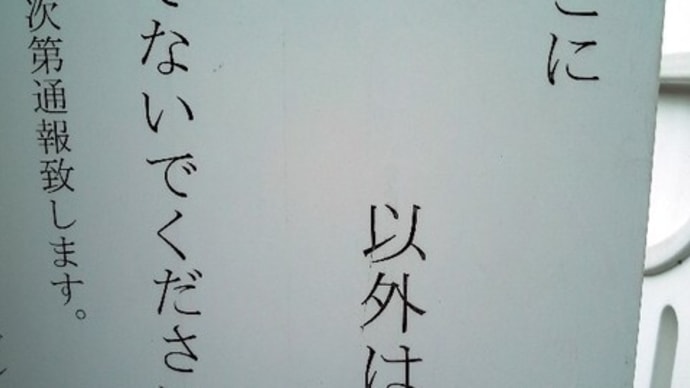 こに
以外は
てないでくださ
次第通報致します。